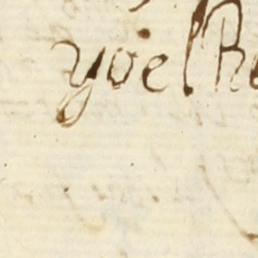 yoel Re